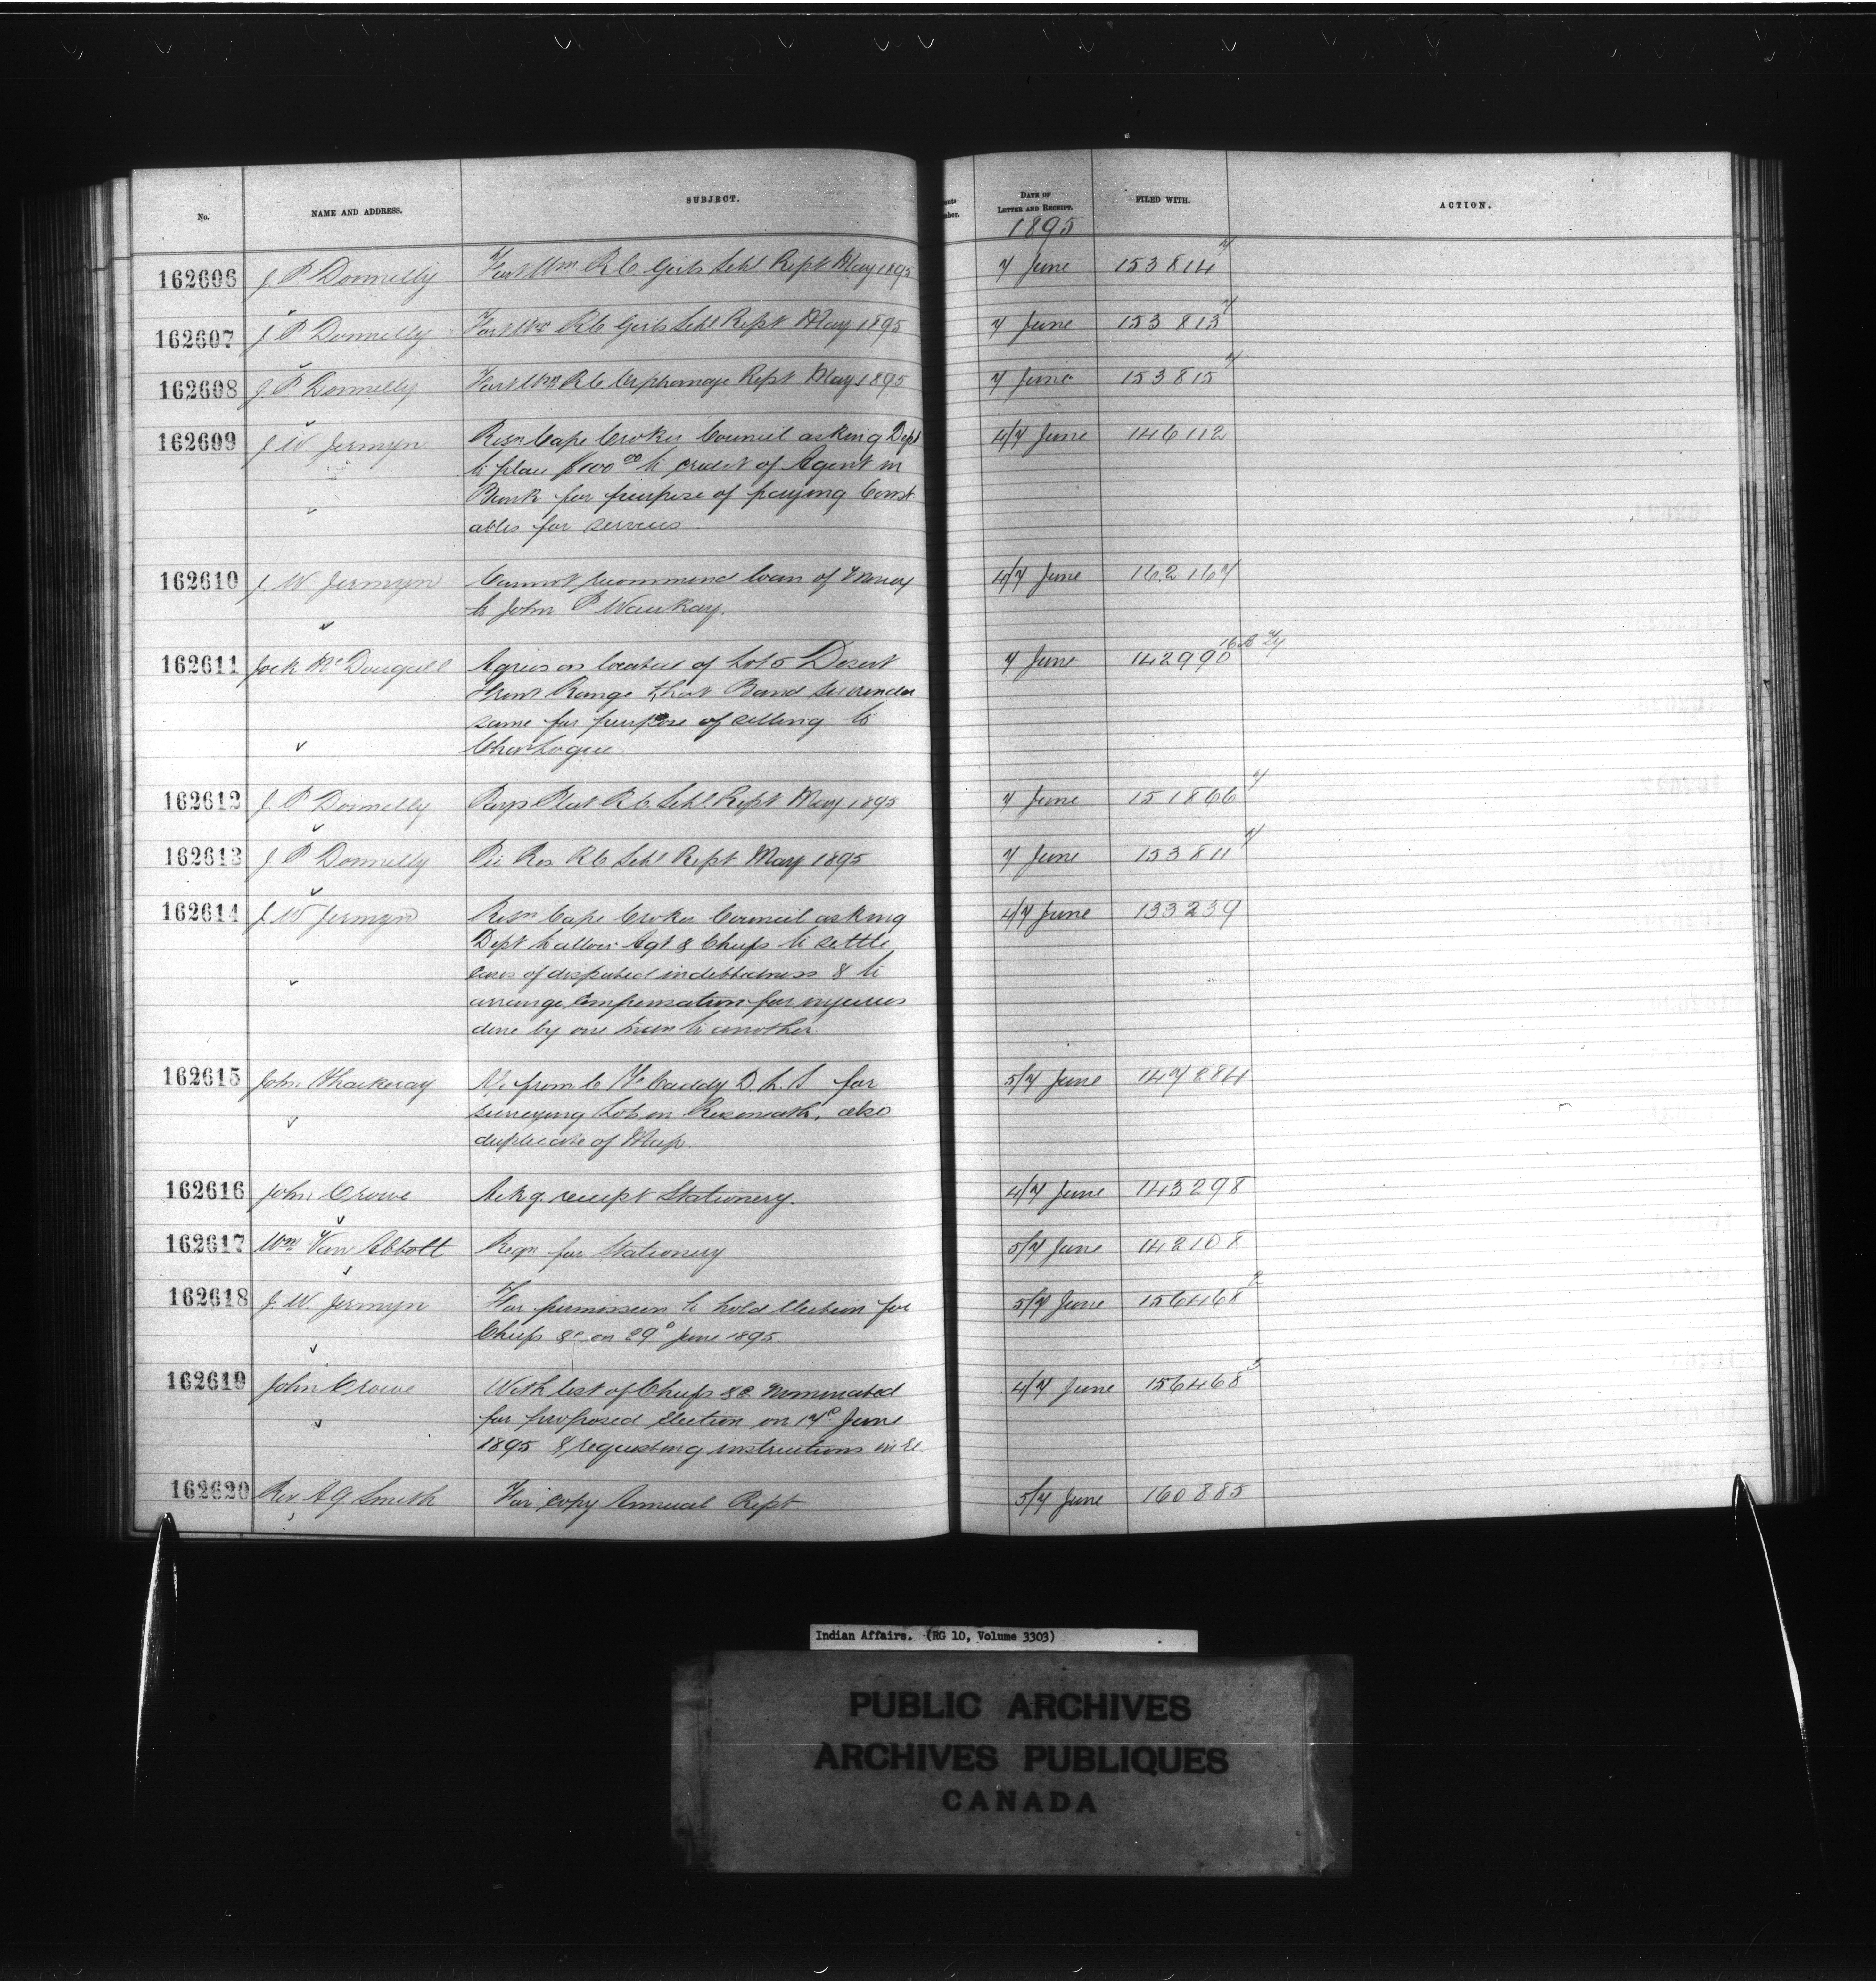 No. NAME AND ADDRESS. SUBJECT. DATE OF LETTER AND RECEIPT. FILED WITH. ACTION.
1895
162606 J. P. Donnelly Fort Wm R C Girls Schl Rept May 1895 7 June 153814 7
162607 J P Donnelly Fort Wm R C Girls Schl Rept May 1895 7 June 153813 7
162608 J P Donnelly Fort Wm R C Orphanage Rept May 1895 7 June 153815 7
162609 J W Jermyn Resn Cape Croker Council asking Dept 4/7 June 146112
to place $100 00 to credit of Agent in
Bank for purpose of paying Const
ables for services
162610 J. W Jermyn Cannot recommend loan of Money 4/7 June 162167
to John P Waukay.
162611 Jock McDougall Agrees as locatee of Lot 5 Desert 7 June 142990
Front Range that Band surrender
same for purpose of selling to
162612 J. P. Donnelly Pays Plat R C Schl Rept May 1895 7 June 151866 7
162613 J P Donnelly Pic Res R C Schl Rept May 1895 7 June 153811 7
162614 J W Jermyn Resn Cape Croker Council asking 4/7 June 133239
Dept to allow Agt & Chiefs to settle
cases of disputed indebtedness & to
arrange compensation for injuries
done by one man to another.
162615 John Thackeray from C F Caddy D. L. S for 5/7 June 147284
surveying Lot on also
duplicate of Map.
162616 John Crowe Ackg receipt Stationery. 4/7 June 143298
162617 Wm Van Abbott Reqn for Stationery 5/7 June 142108
162618 J. W. Jermyn For permission to hold Election for 5/7 June 156468 2
Chiefs &c on 29o June 1895.
162619 John Crowe With list of Chiefs &c Nominated 4/7 June 156468 3
for proposed Election on 17o June
1895 & requesting instructions in re.
162620 Rev. A G Smith For copy Annual Rept 5/7 June 160885
Indian Affairs. (RG 10, Volume 3303)
PUBLIC ARCHIVES
ARCHIVES PUBLIQUES
CANADA